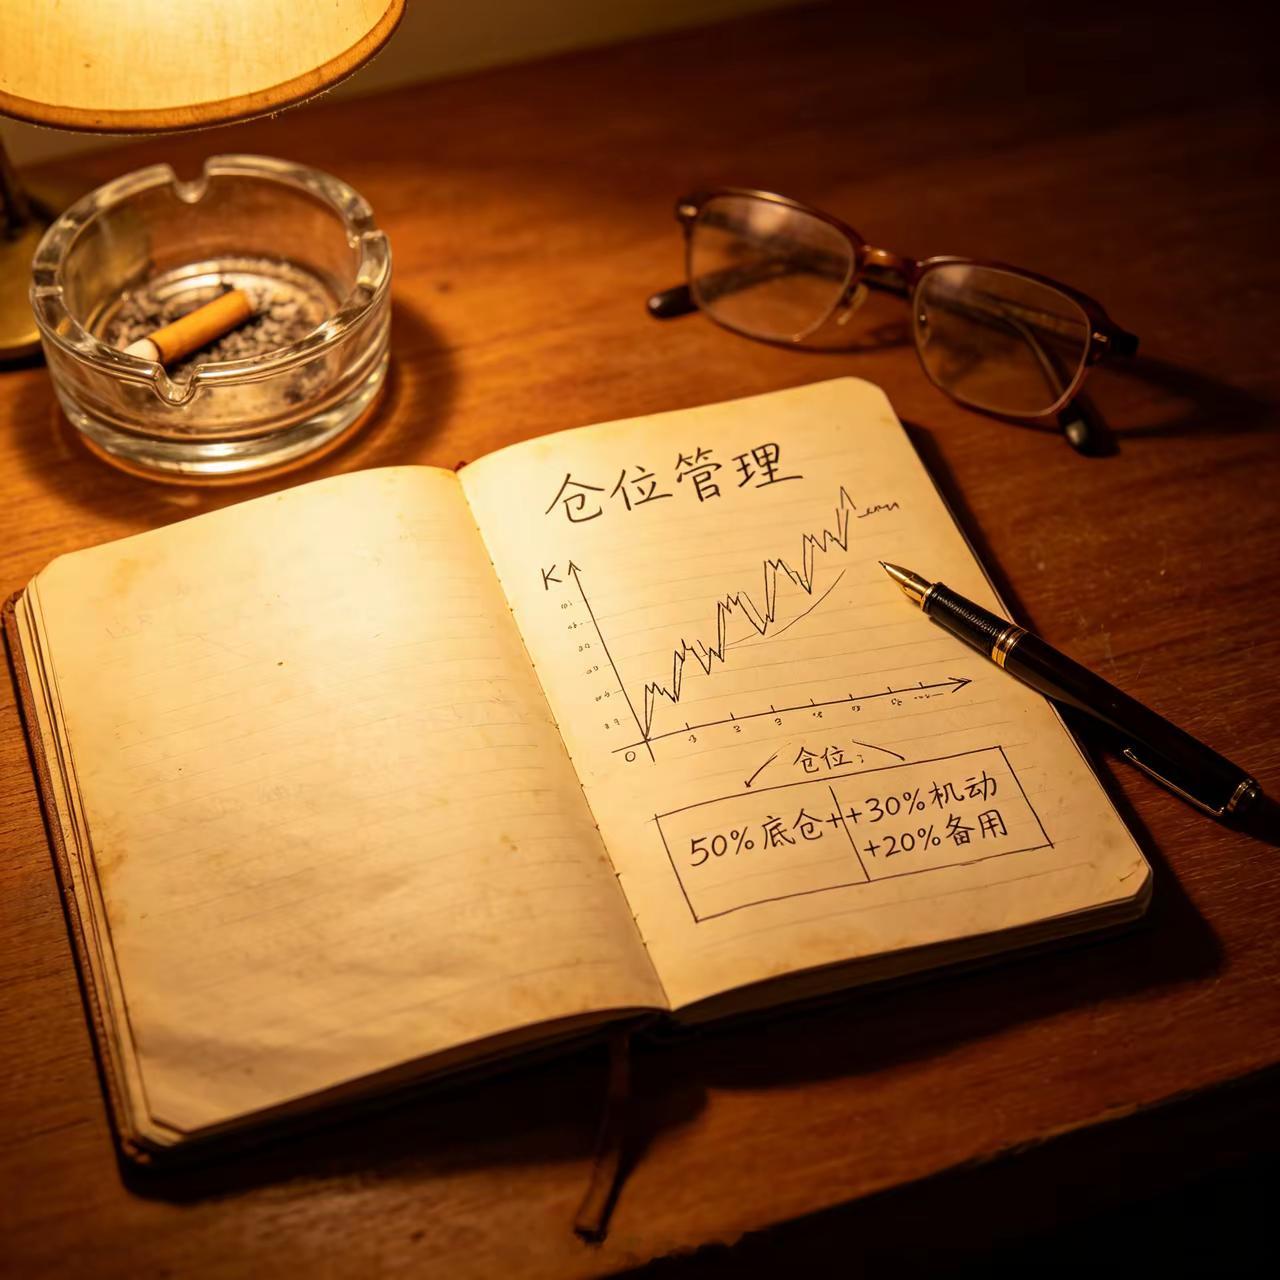 仓位管理
K
0
仓位:
50%底仓+
+30%机动
+20%备用